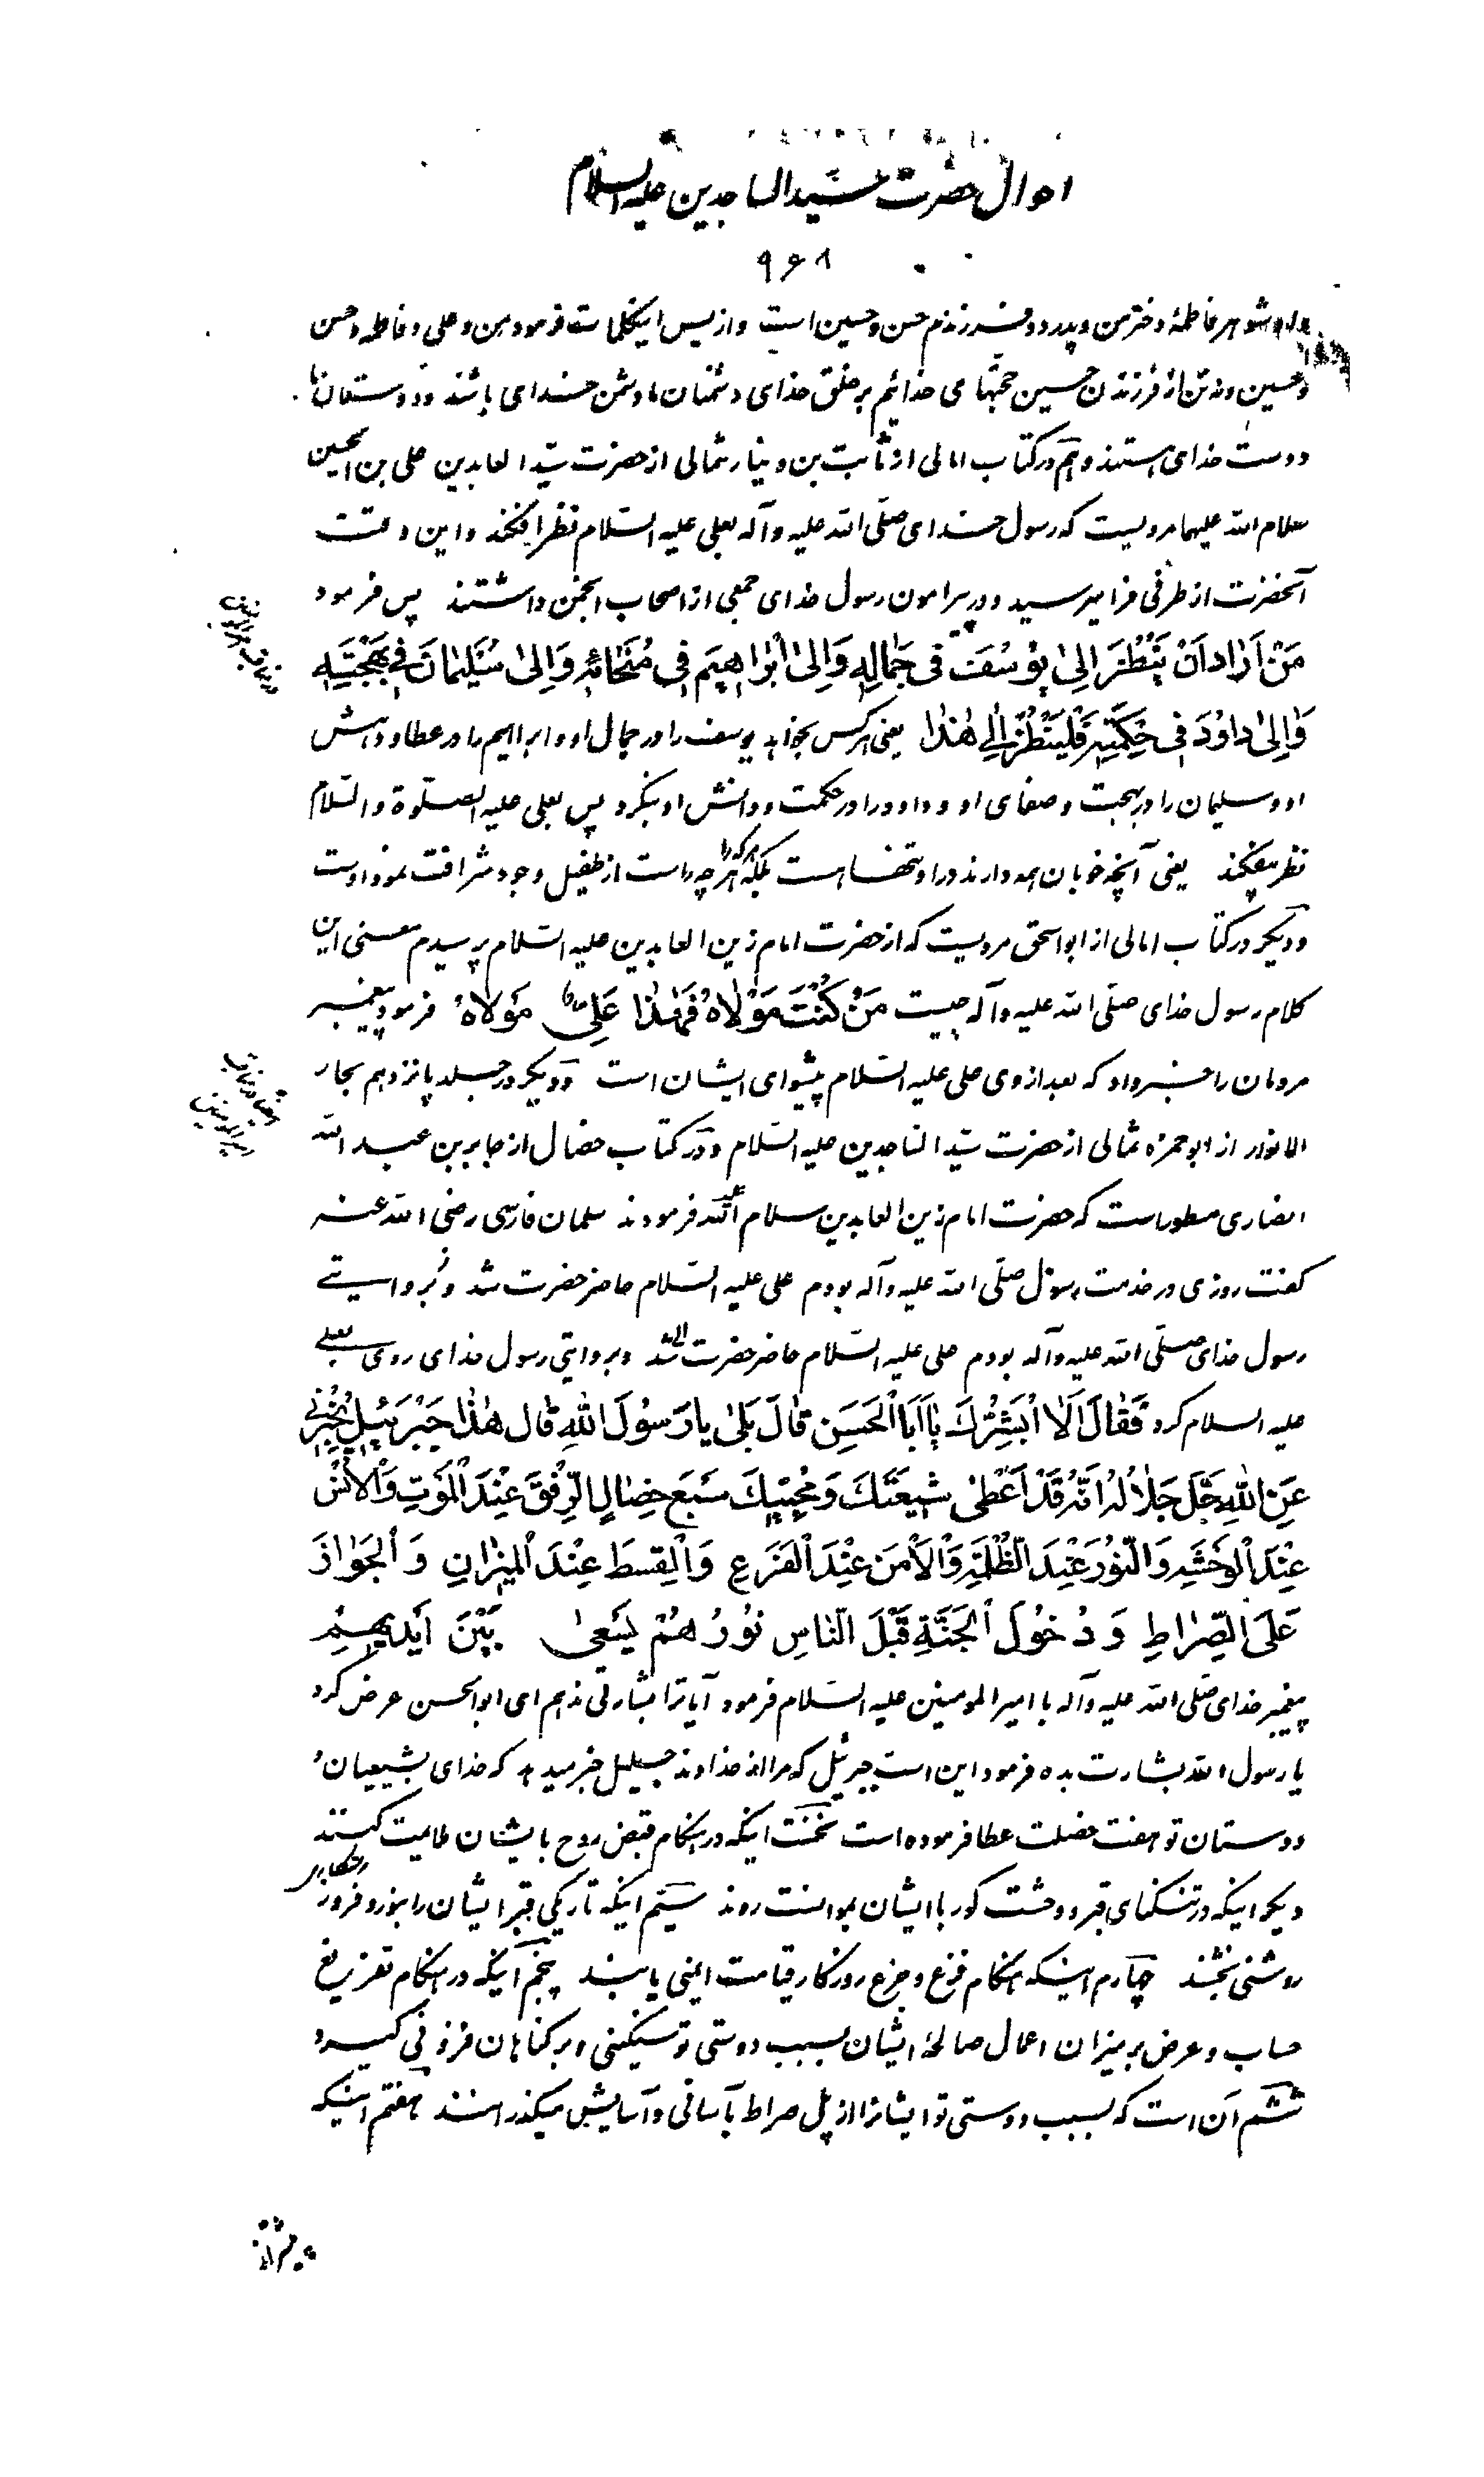 احوال حضرت سید الساجدین علیه السلام
۹۶۸
شوهر فاطمهٔ دختر من و پدر دو فرزندم حسن و حسین است و از پس اینکلمات فرمود من و علی و فاطمه و حسن
و حسین و نه تن از فرزندان حسین حجتهای خدائیم بر خلق خدای دشمنان ما دشمن خدای باشند و دوستان ما
دوست خدای هستند و هم در کتاب امالی از ثابت بن دینار ثمالی از حضرت سید العابدین علی بن الحسین
سلام الله علیهما مرویست که رسول خدای صلی الله علیه وآله بعلی علیه السلام نظر افکند و این وقت
آنحضرت از طرفی فرا میرسید و در پیرامون رسول خدای جمعی از اصحاب انجمن داشتند پس فرمود
مَنْ اَرٰادَ اَنْ یَنْظُرَ اِلیٰ یُوسُفَ فی جَمٰالِهِ وَاِلیٰ اِبْرٰاهیمَ فی سَخٰائِهِ وَاِلیٰ سُلَیْمٰانَ فی بَهْجَتِهِ
وَاِلیٰ دٰاوُدَ فی حِکْمَتِهِ فَلْیَنْظُرْ اِلیٰ هٰذا یعنی هر کس بخواهد یوسف را در جمال او و ابراهیم را در عطا و دهش
او و سلیمان را در بهجت و صفای او و داود را در حکمت و دانش او بنگرد پس بعلی علیه الصلوة والسلام
نظر بیفکند یعنی آنچه خوبان همه دارند در او تنهاست بلکه هر که را هر چه راست از طفیل وجود شرافت نمود اوست
و دیگر در کتاب امالی از ابو اسحق مرویست که از حضرت امام زین العابدین علیه السلام پرسیدم معنی این
کلام رسول خدای صلی الله علیه وآله چیست مَنْ کُنْتُ مَوْلاٰهُ فَهٰذا عَلِیٌّ مَوْلاٰهُ فرمود پیغمبر
مردمان را خبر داد که بعد از وی علی علیه السلام پیشوای ایشان است و دیگر در جلد پانزدهم بحار
الانوار از ابو حمزه ثمالی از حضرت سید الساجدین علیه السلام و در کتاب خصال از جابر بن عبد الله
انصاری مسطور است که حضرت امام زین العابدین سلام الله علیه فرمودند سلمان فارسی رضی الله عنه
گفت روزی در خدمت رسول صلی الله علیه وآله بودم علی علیه السلام حاضر حضرت شد و بروایتے
رسول خدای صلی الله علیه وآله بودم علی علیه السلام حاضر حضرت شد الی و بروایتی رسول خدای روی بعلے
علیه السلام کرد فَقٰالَ اَلاٰ اُبَشِّرُکَ یٰا اَبَا الْحَسَنِ قٰالَ بَلیٰ یا رَسُولَ اللهِ قٰالَ هٰذٰا جَبْرَئیلُ یُخْبِرُنی
عَنِ اللهِ جَلَّ جَلاٰلُهُ اَنَّهُ قَدْ اَعْطیٰ شیعَتَکَ وَ مُحِبّیکَ سَبْعَ خِصٰالٍ الرِّفْقَ عِنْدَ الْمَوْتِ وَالْاُنْسَ
عِنْدَ الْوَحْشَةِ وَ النُّورَ عِنْدَ الظُّلْمَةِ وَالْاَمْنَ عِنْدَ الْفَزَعِ وَالْقِسْطَ عِنْدَ الْمیزٰانِ وَ الْجَوٰازَ
عَلَی الصِّرٰاطِ وَ دُخُولَ الْجَنَّةِ قَبْلَ النّاسِ نُورُهُمْ یَسْعیٰ بَیْنَ اَیْدیهِمْ
پیغمبر خدای صلی الله علیه وآله با امیر المومنین علیه السلام فرمود آیا ترا بشارتی ندهم ای ابو الحسن عرض کرد
یا رسول الله بشارت بده فرمود این است جبرئیل که مرا از خداوند جلیل خبر میدهد که خدای بشیعیان و
دوستان تو هفت خصلت عطا فرموده است نخست اینکه در هنگام قبض روح با ایشان ملایمت کنند
دیگر اینکه در تنگنای قبر و وحشت گور با ایشان بموانست روند سیم اینکه تاریکی قبر ایشان را بنور و فروز
روشنی بخشند چهارم اینکه هنگام فزع و جزع روزگار قیامت ایمنی یابند پنجم اینکه در هنگام تفریغ
حساب و عرض بر میزان اعمال صالحهٔ ایشان بسبب دوستی تو سنگینی و بر گناهان فزونی گیرد
ششم آن است که بسبب دوستی تو ایشانرا از پل صراط بآسانی و آسایش میگذرانند هفتم اینکه